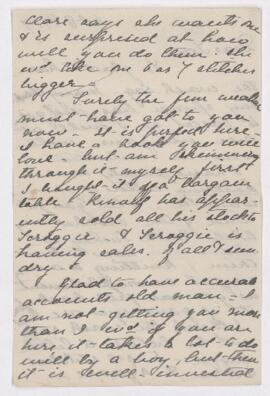 Clare says she wants one
& is surprised at how
well you do them. She
wd. like one 6 or 7 stitches
bigger –
Surely the fine weather
must have got to you
now. It is perfect here –
I have a book you will
love. but am skimming
through it myself first
I bought it off a bargain
table. Kinaly has appar-
ently sold all his stock to
Scroggie. & Scroggie is
having sales. of all & sun-
dry
Glad to have accurate
accounts old man – I
am not getting you more
than I wd. if you are
here it takes a lot to do
well by a boy, but then
it is well invested